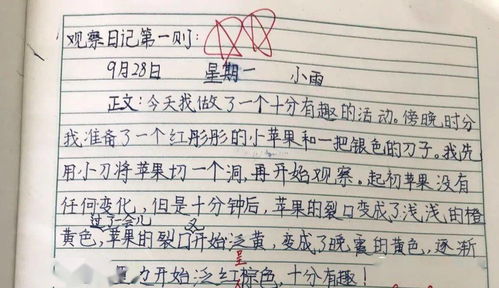 观察日记第一则:
9月28日 星期一 小雨
正文:今天我做了一个十分有趣的活动。傍晚时分
我准备了一个红彤彤的小苹果和一把银色的刀子。我先
用小刀将苹果切一个洞,再开始观察。起初苹果没有
任何变化,但是十分钟后,苹果的裂口变成了浅浅的橙
过了一会儿 又
黄色,苹果的裂口开始泛黄,变成了晚霞的黄色,逐渐
呈
边开始泛红棕色,十分有趣!